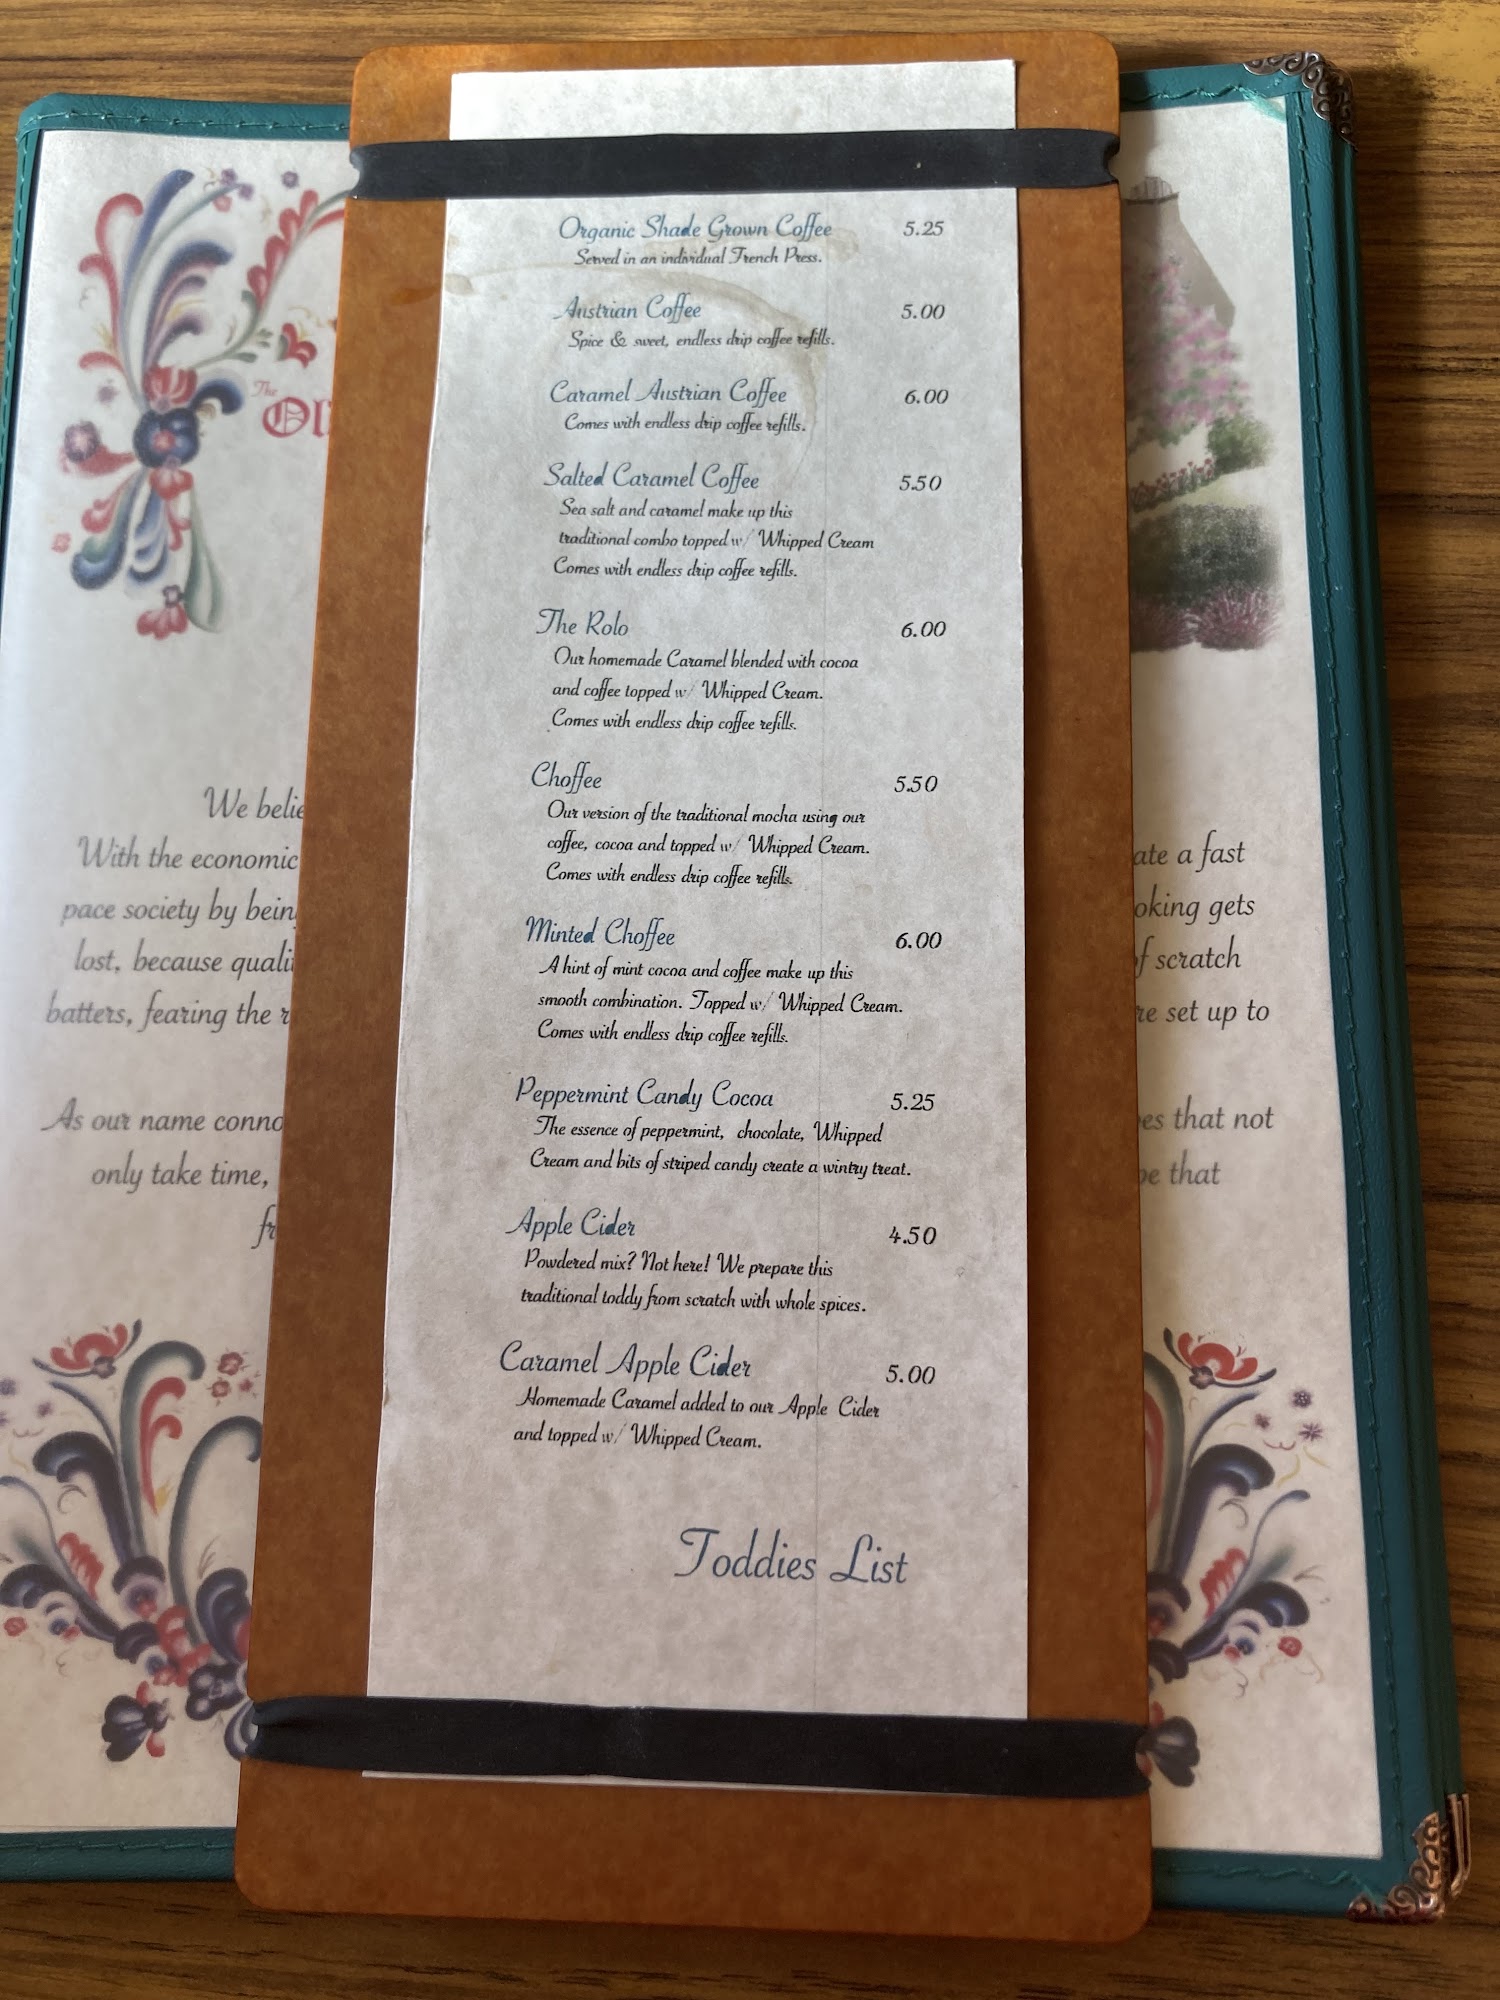 Organic Shade Grown Coffee 5.25
Served in an individual French Press.
Austrian Coffee 5.00
Spice & sweet, endless drip coffee refills.
Caramel Austrian Coffee 6.00
Comes with endless drip coffee refills.
Salted Caramel Coffee 5.50
Sea salt and caramel make up this
traditional combo topped w/ Whipped Cream
Comes with endless drip coffee refills.
The Rolo 6.00
Our homemade Caramel blended with cocoa
and coffee topped w/ Whipped Cream.
Comes with endless drip coffee refills.
Choffee 5.50
Our version of the traditional mocha using our
coffee, cocoa and topped w/ Whipped Cream.
Comes with endless drip coffee refills.
Minted Choffee 6.00
A hint of mint cocoa and coffee make up this
smooth combination. Topped w/ Whipped Cream.
Comes with endless drip coffee refills.
Peppermint Candy Cocoa 5.25
The essence of peppermint, chocolate, Whipped
Cream and bits of striped candy create a wintry treat.
Apple Cider 4.50
Powdered mix? Not here! We prepare this
traditional toddy from scratch with whole spices.
Caramel Apple Cider 5.00
Homemade Caramel added to our Apple Cider
and topped w/ Whipped Cream.
Toddies List
The
We
With the economic
pace society by
lost, because
batters, fearing the
As our name
only take time,
a fast
gets
scratch
set up to
that not
that